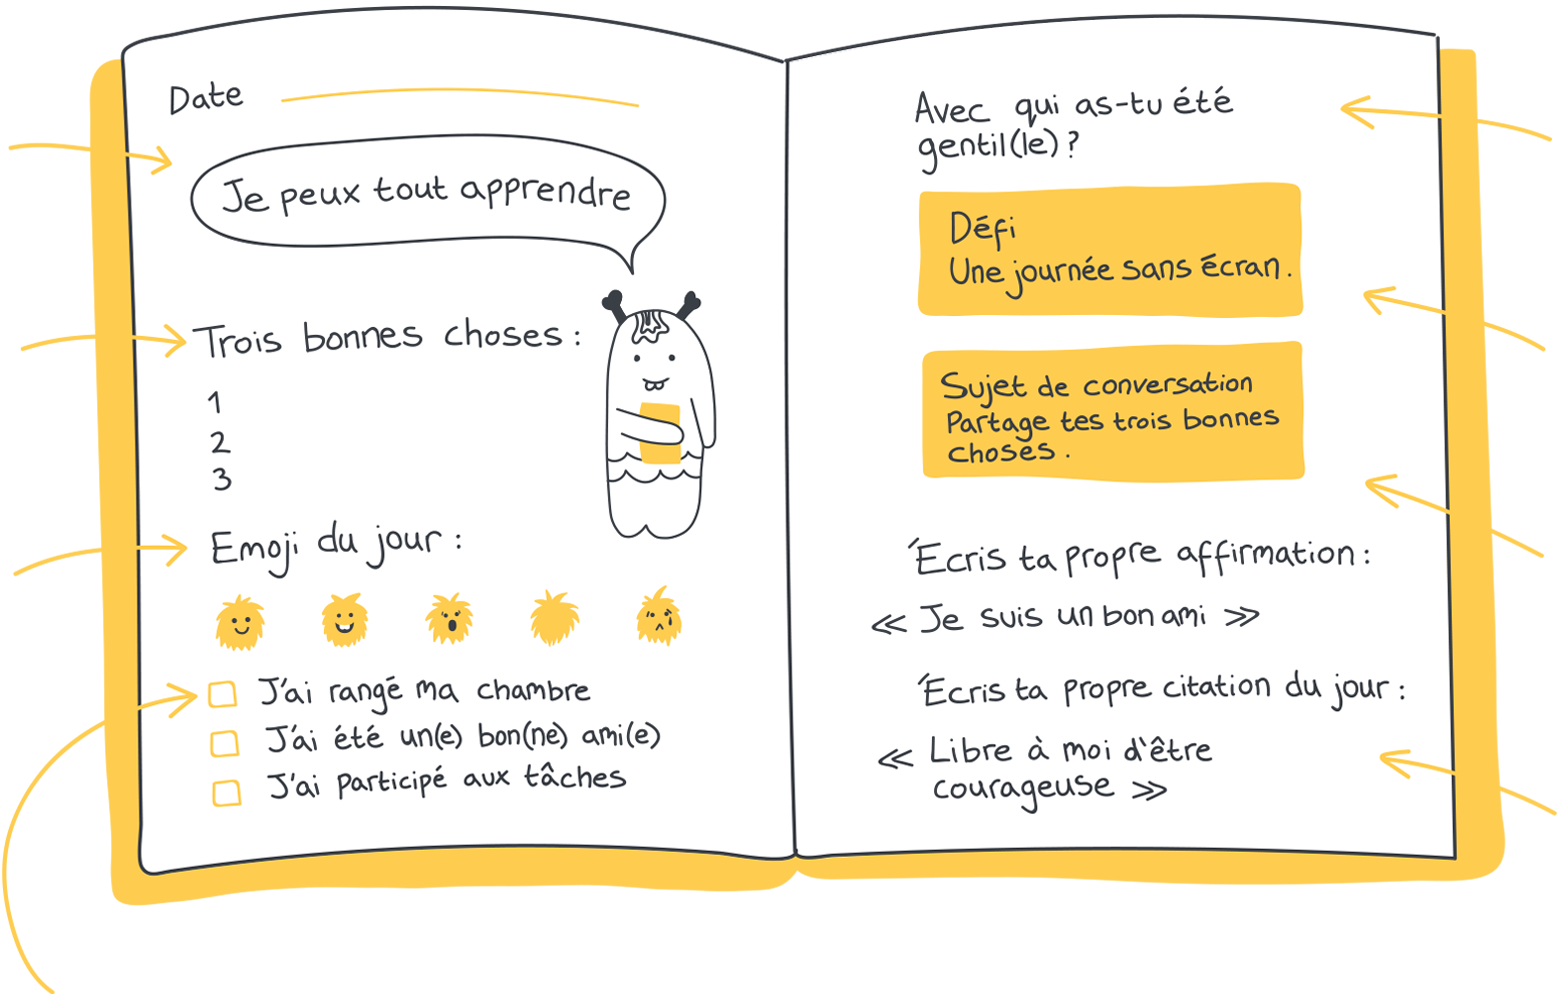 Date
Je peux tout apprendre
Trois bonnes choses :
1
2
3
Emoji du jour :
J'ai rangé ma chambre
J'ai été un(e) bon(ne) ami(e)
J'ai participé aux tâches
Avec qui as-tu été
gentil(le) ?
Défi
Une journée sans écran.
Sujet de conversation
Partage tes trois bonnes
choses.
Écris ta propre affirmation :
« Je suis un bon ami »
Écris ta propre citation du jour :
« Libre à moi d'être
courageuse »